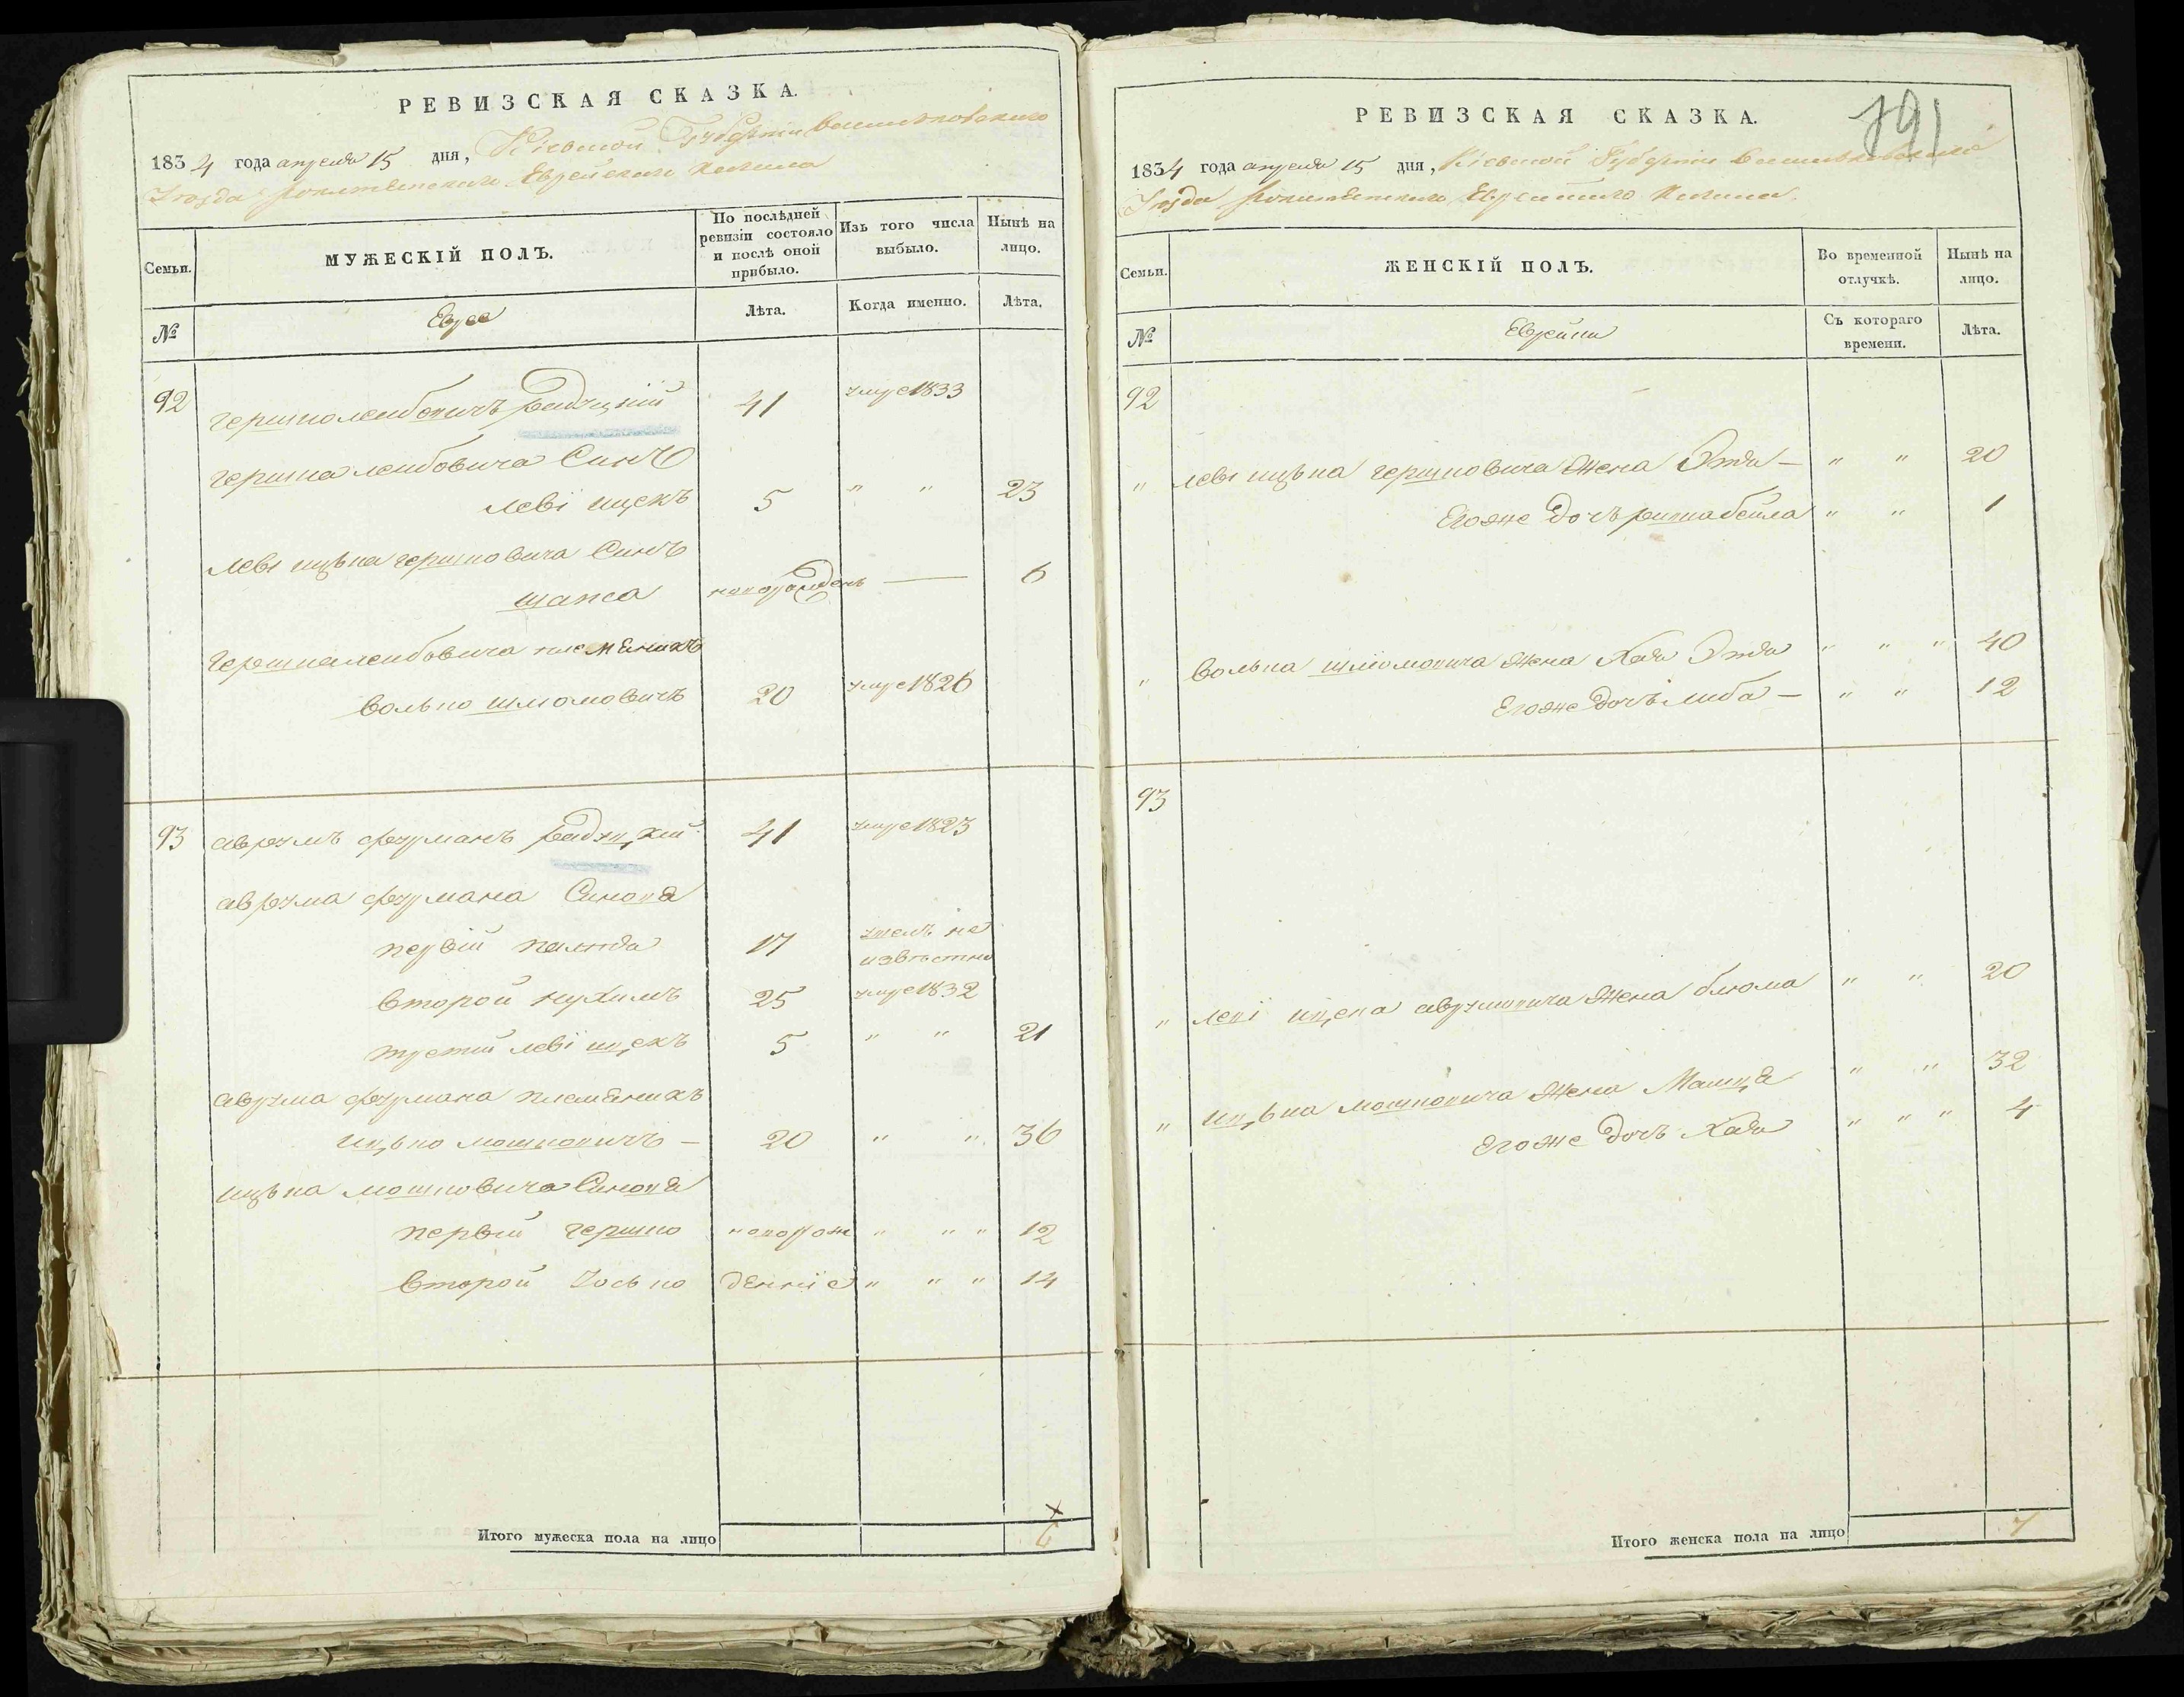 РЕВИЗСКАЯ СКАЗКА.
1834 года апреля 15 дня, Кіевской Губерніи Васильковского
Уезда Рокитянского Еврейского Кагала
Семьи.
МУЖЕСКІЙ ПОЛЪ.
По послѣдней ревизіи состояло и послѣ оной прибыло.
Изъ того числа выбыло.
Нынѣ на лицо.
№
Евреи
Лѣта.
Когда именно.
Лѣта.
92 гершко леибовичъ радзцкій 41 умре 1833
гершка леибовича Синъ
леві ицекъ 5 " " 23
леві ицька гершковича Синъ
шапса новорожденъ — 6
гершка леибовича племеникъ
волько шлиомовичъ 20 умре 1826
93 аврумъ фурманъ радзицкій 41 умре 1823
аврума фурмана Синови
первій 17 не
извѣстно
второй нухимъ 25 умре 1832
третій леві ицекъ 5 " " 21
аврума фурмана племеникъ
ицько мошковичъ — 20 " " 36
ицька мошковича Синови
первій гершко новорож " " " 12
второй иосько денніе " " " 14
Итого мужеска пола на лицо 6
РЕВИЗСКАЯ СКАЗКА.
791
1834 года апреля 15 дня, Кіевской Губерніи Васильковского
Уезда Рокитянского Еврейского Кагала
Семьи.
ЖЕНСКІЙ ПОЛЪ.
Во временной отлучкѣ.
Нынѣ на лицо.
№
Еврейки
Съ котораго времени.
Лѣта.
92 —
" леві ицька гершковича жена Этя — " " 20
Егоже дочъ ривка бейла " " 1
" волька шлиомовича жена Хая Этя " " " 40
Егоже дочъ либа — " " 12
93
" леві ицека аврумовича жена блюма " " 20
" ицька мошковича жена " " 32
Егоже дочъ Хая " " " 4
Итого женска пола на лицо 7